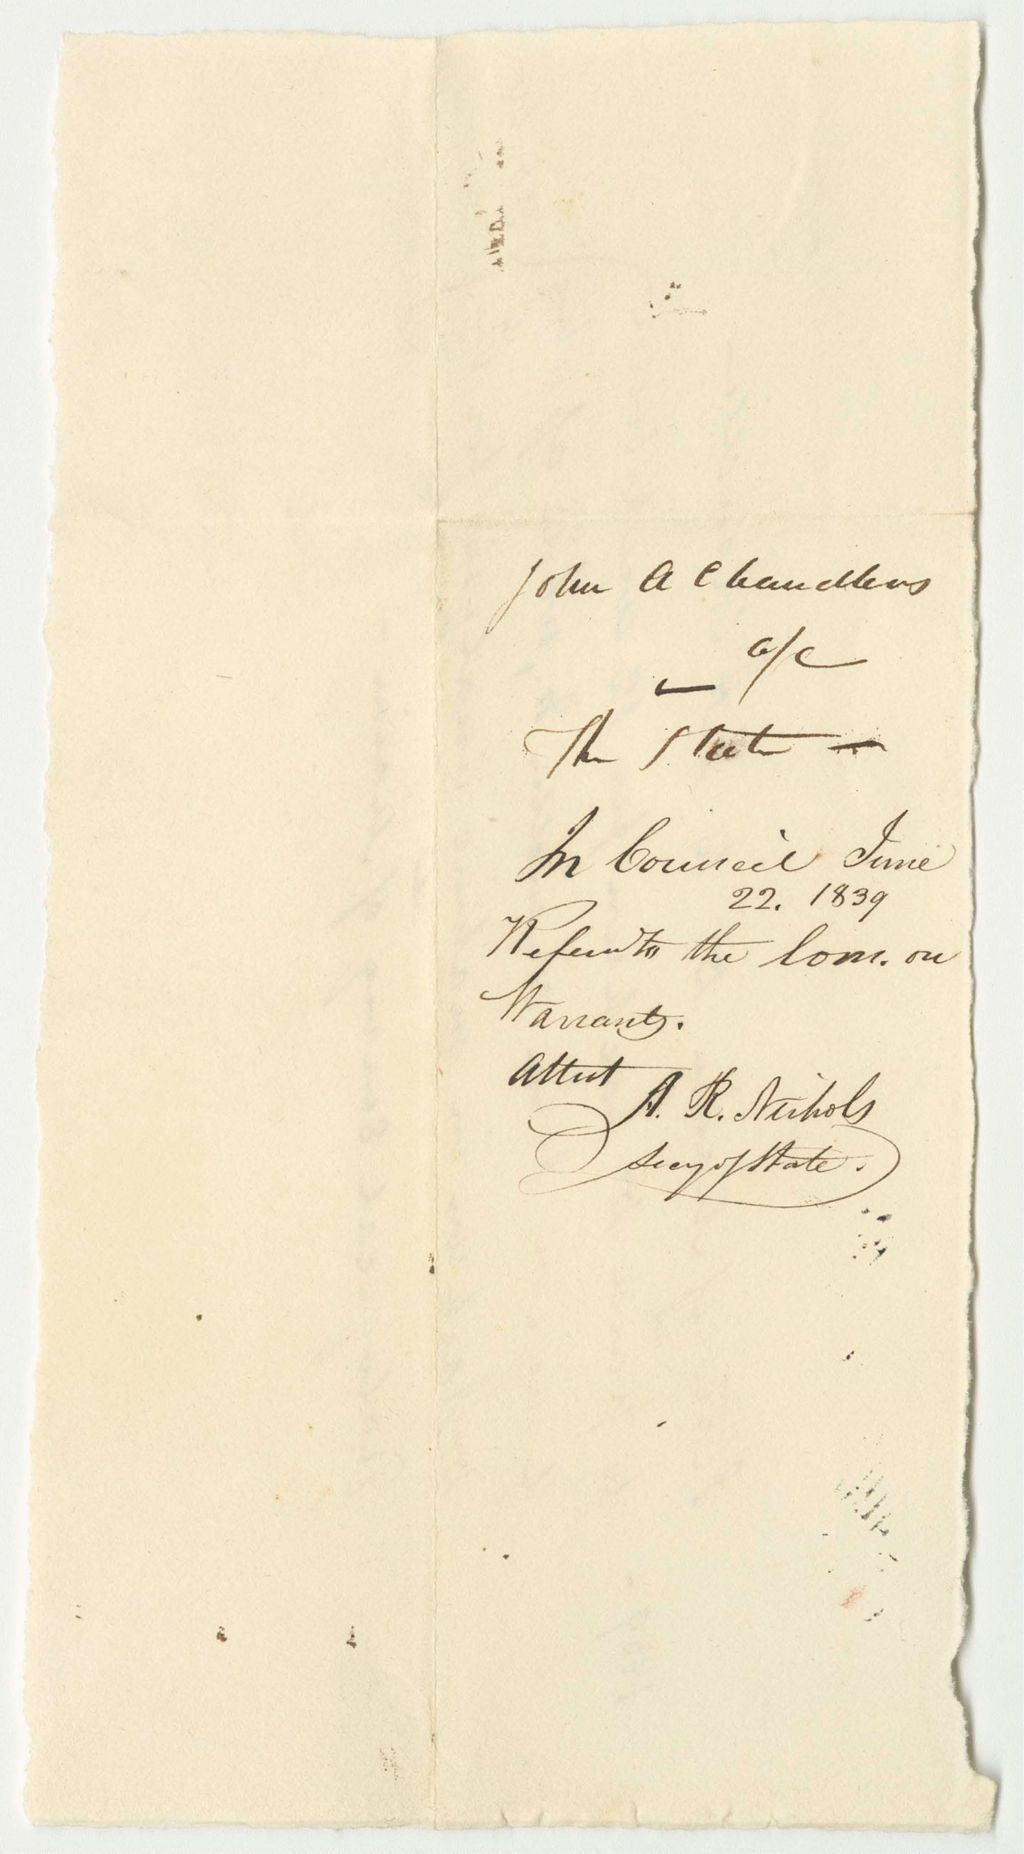 John A Chandlers
a/c
The State
In Council June
22. 1839
Refered to the Com. on
Warrants.
Attest
A. R. Nichols
Secy of State.